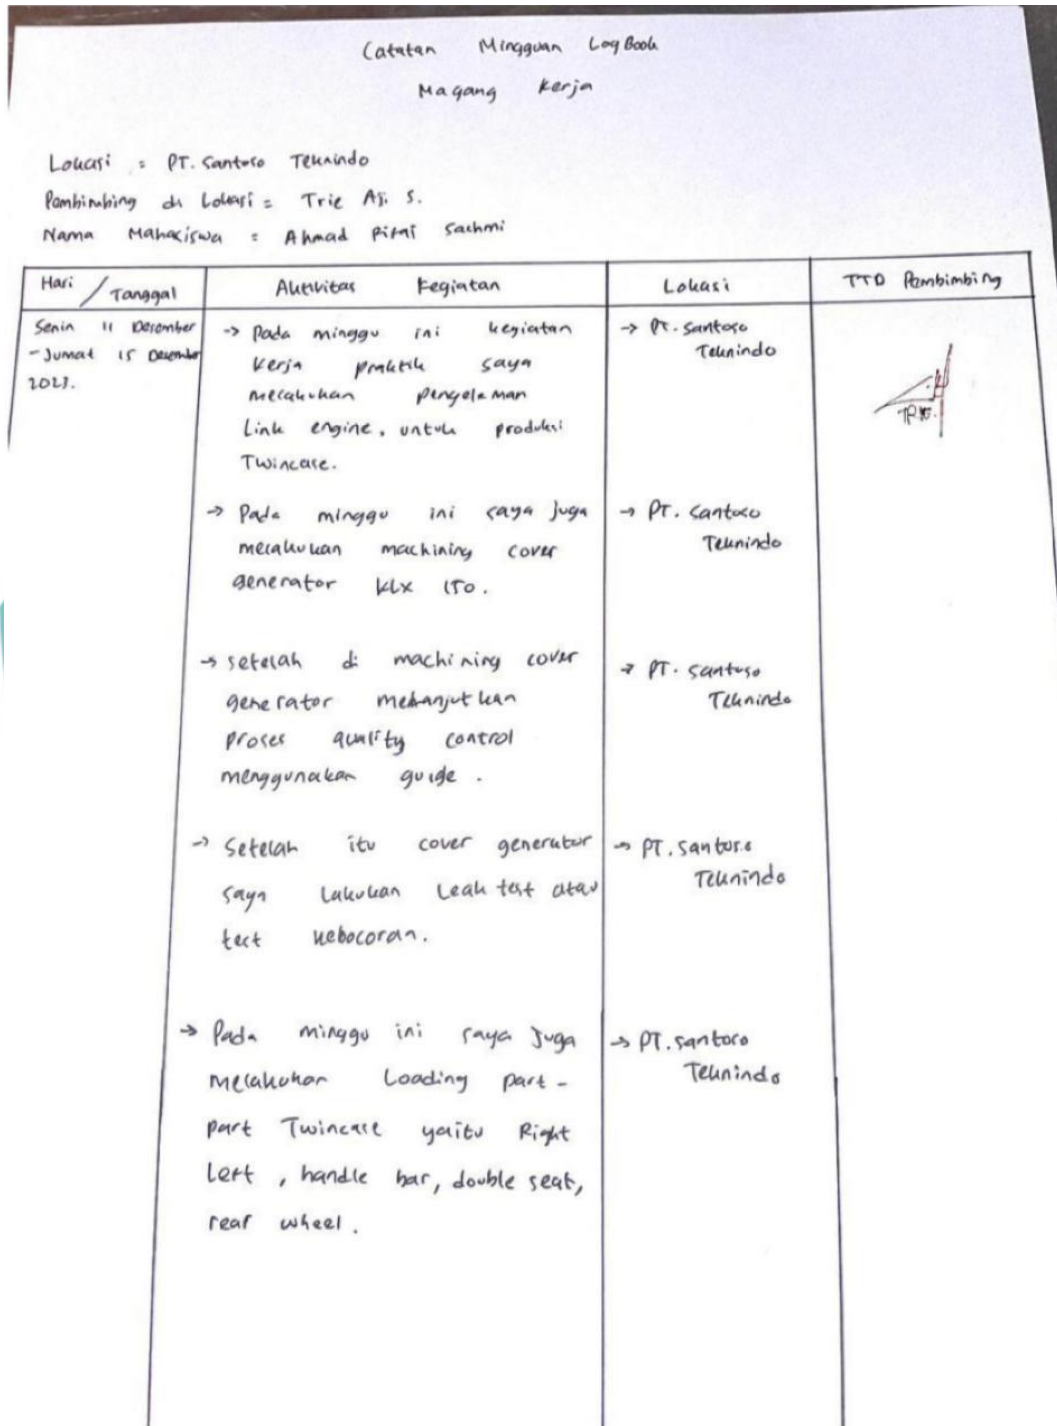 Catatan Mingguan LogBook
Magang Kerja
Lokasi : PT. Santoso Teknindo
Pembimbing di Lokasi = Trie Aji. S.
Nama Mahasiswa = Ahmad Rifai Sachmi
Hari / Tanggal
Aktivitas Kegiatan
Lokasi
TTD Pembimbing
Senin 11 Desember
- Jumat 15 Desember
2023.
-> Pada minggu ini kegiatan
kerja praktik saya
melakukan pengelaman
Link engine, untuk produksi
Twincase.
-> PT. Santoso
Teknindo
TRIE.
-> Pada minggu ini saya juga
melakukan machining cover
generator KLX 150.
-> PT. Santoso
Teknindo
-> setelah di machining cover
generator melanjutkan
proses quality control
menggunakan guide.
-> PT. Santoso
Teknindo
-> Setelah itu cover generator
saya lakukan Leak test atau
test kebocoran.
-> PT. Santoso
Teknindo
-> Pada minggu ini saya juga
melakukan Loading part-
part Twincase yaitu Right
Left, handle bar, double seat,
rear wheel.
-> PT. Santoso
Teknindo